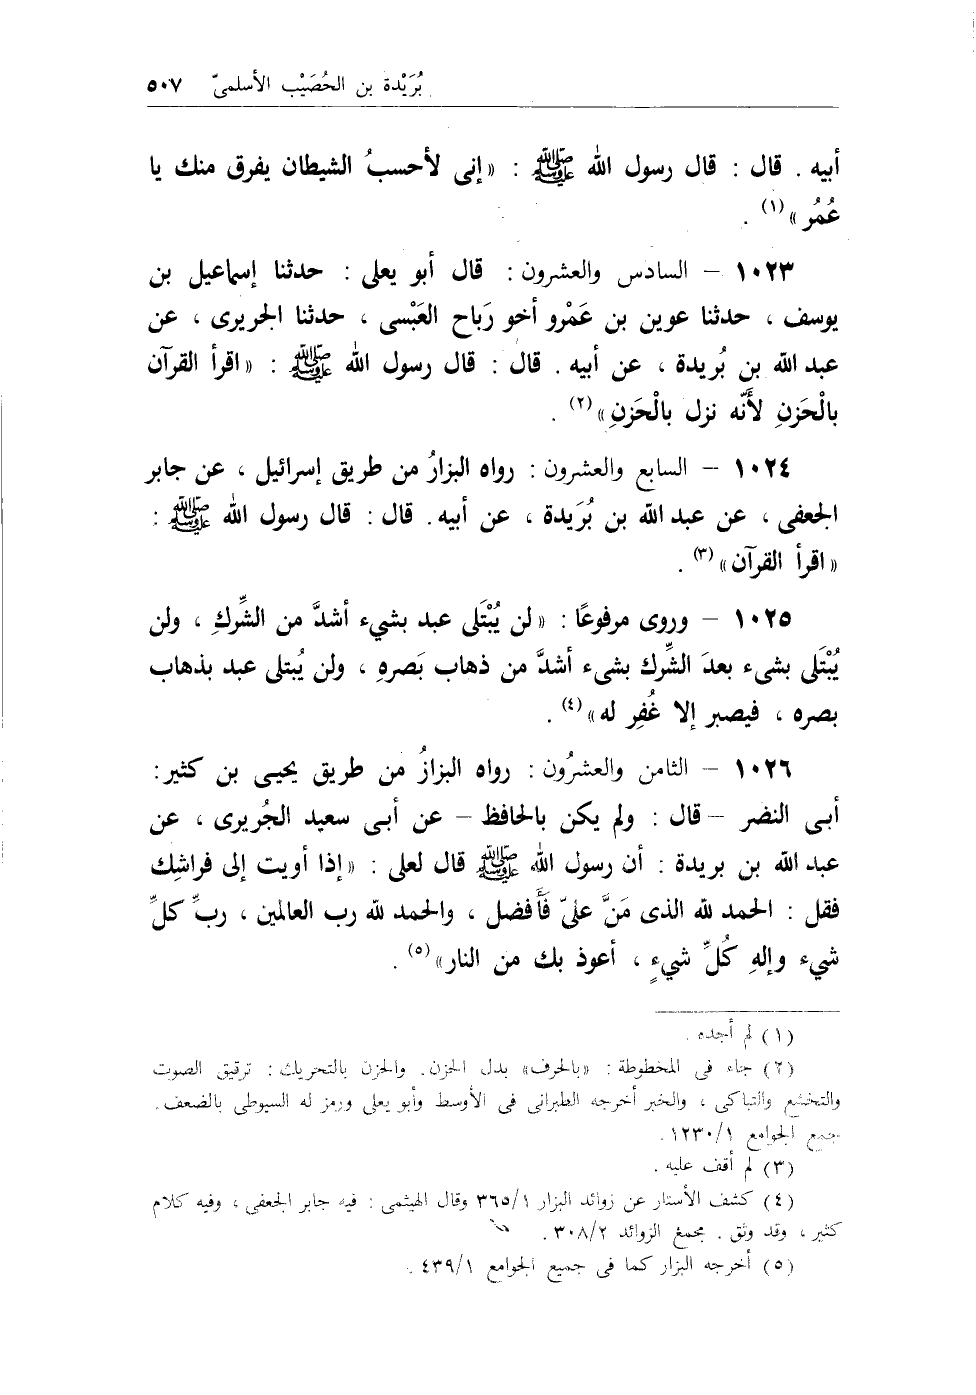 بُرَيْدة بن الحُصَيْب الأسلمىّ ٥٠٧
أبيه . قال : قال رسول الله ﷺ : «إنى لأحسبُ الشيطان يفرق منك يا
عُمُر»(١) .
١٠٢٣ – السادس والعشرون : قال أبو يعلى : حدثنا إسماعيل بن
يوسف ، حدثنا عوين بن عَمْرو أخو رَباح العَبْسى ، حدثنا الجريرى ، عن
عبد الله بن بُريدة ، عن أبيه . قال : قال رسول الله ﷺ : «اقرأ القرآن
بالْحَزنِ لأَنّه نزل بالْحَزنِ»(٢) .
١٠٢٤ – السابع والعشرون : رواه البزارُ من طريق إسرائيل ، عن جابر
الجعفى ، عن عبد الله بن بُرَيدة ، عن أبيه . قال : قال رسول الله ﷺ :
«اقرأ القرآن»(٣) .
١٠٢٥ – وروى مرفوعًا : «لن يُبْتَلى عبد بشيء أشدَّ من الشِّركِ ، ولن
يُبْتَلى بشىء بعدَ الشِّرك بشىء أشدَّ من ذهاب بَصرهِ ، ولن يُبتلى عبد بذهاب
بصره ، فيصبر إلا غُفِر له»(٤) .
١٠٢٦ – الثامن والعشرُون : رواه البزازُ من طريق يحيى بن كثير :
أبى النضر – قال : ولم يكن بالحافظ – عن أبى سعيد الجُريرى ، عن
عبد الله بن بريدة : أن رسول الله ﷺ قال لعلى : «إذا أويت إلى فراشِك
فقل : الحمد لله الذى مَنَّ علىّ فَأَفضل ، والحمد لله رب العالمين ، ربِّ كلِّ
شيء وإلهِ كُلِّ شيءٍ ، أعوذ بك من النار»(٥) .
(١) لم أجده .
(٢) جاء فى المخطوطة : «بالحرف» بدل الحزن . والحزن بالتحريك : ترقيق الصوت
والتخشع والتباكى ، والخبر أخرجه الطبرانى فى الأوسط وأبو يعلى ورمز له السيوطى بالضعف .
جمع الجوامع ١٢٣٠/١ .
(٣) لم أقف عليه .
(٤) كشف الأستار عن زوائد البزار ٣٦٥/١ وقال الهيثمى : فيه جابر الجعفى ، وفيه كلام
كثير ، وقد وثق . مجمع الزوائد ٣٠٨/٢ .
(٥) أخرجه البزار كما فى جميع الجوامع ٤٣٩/١ .